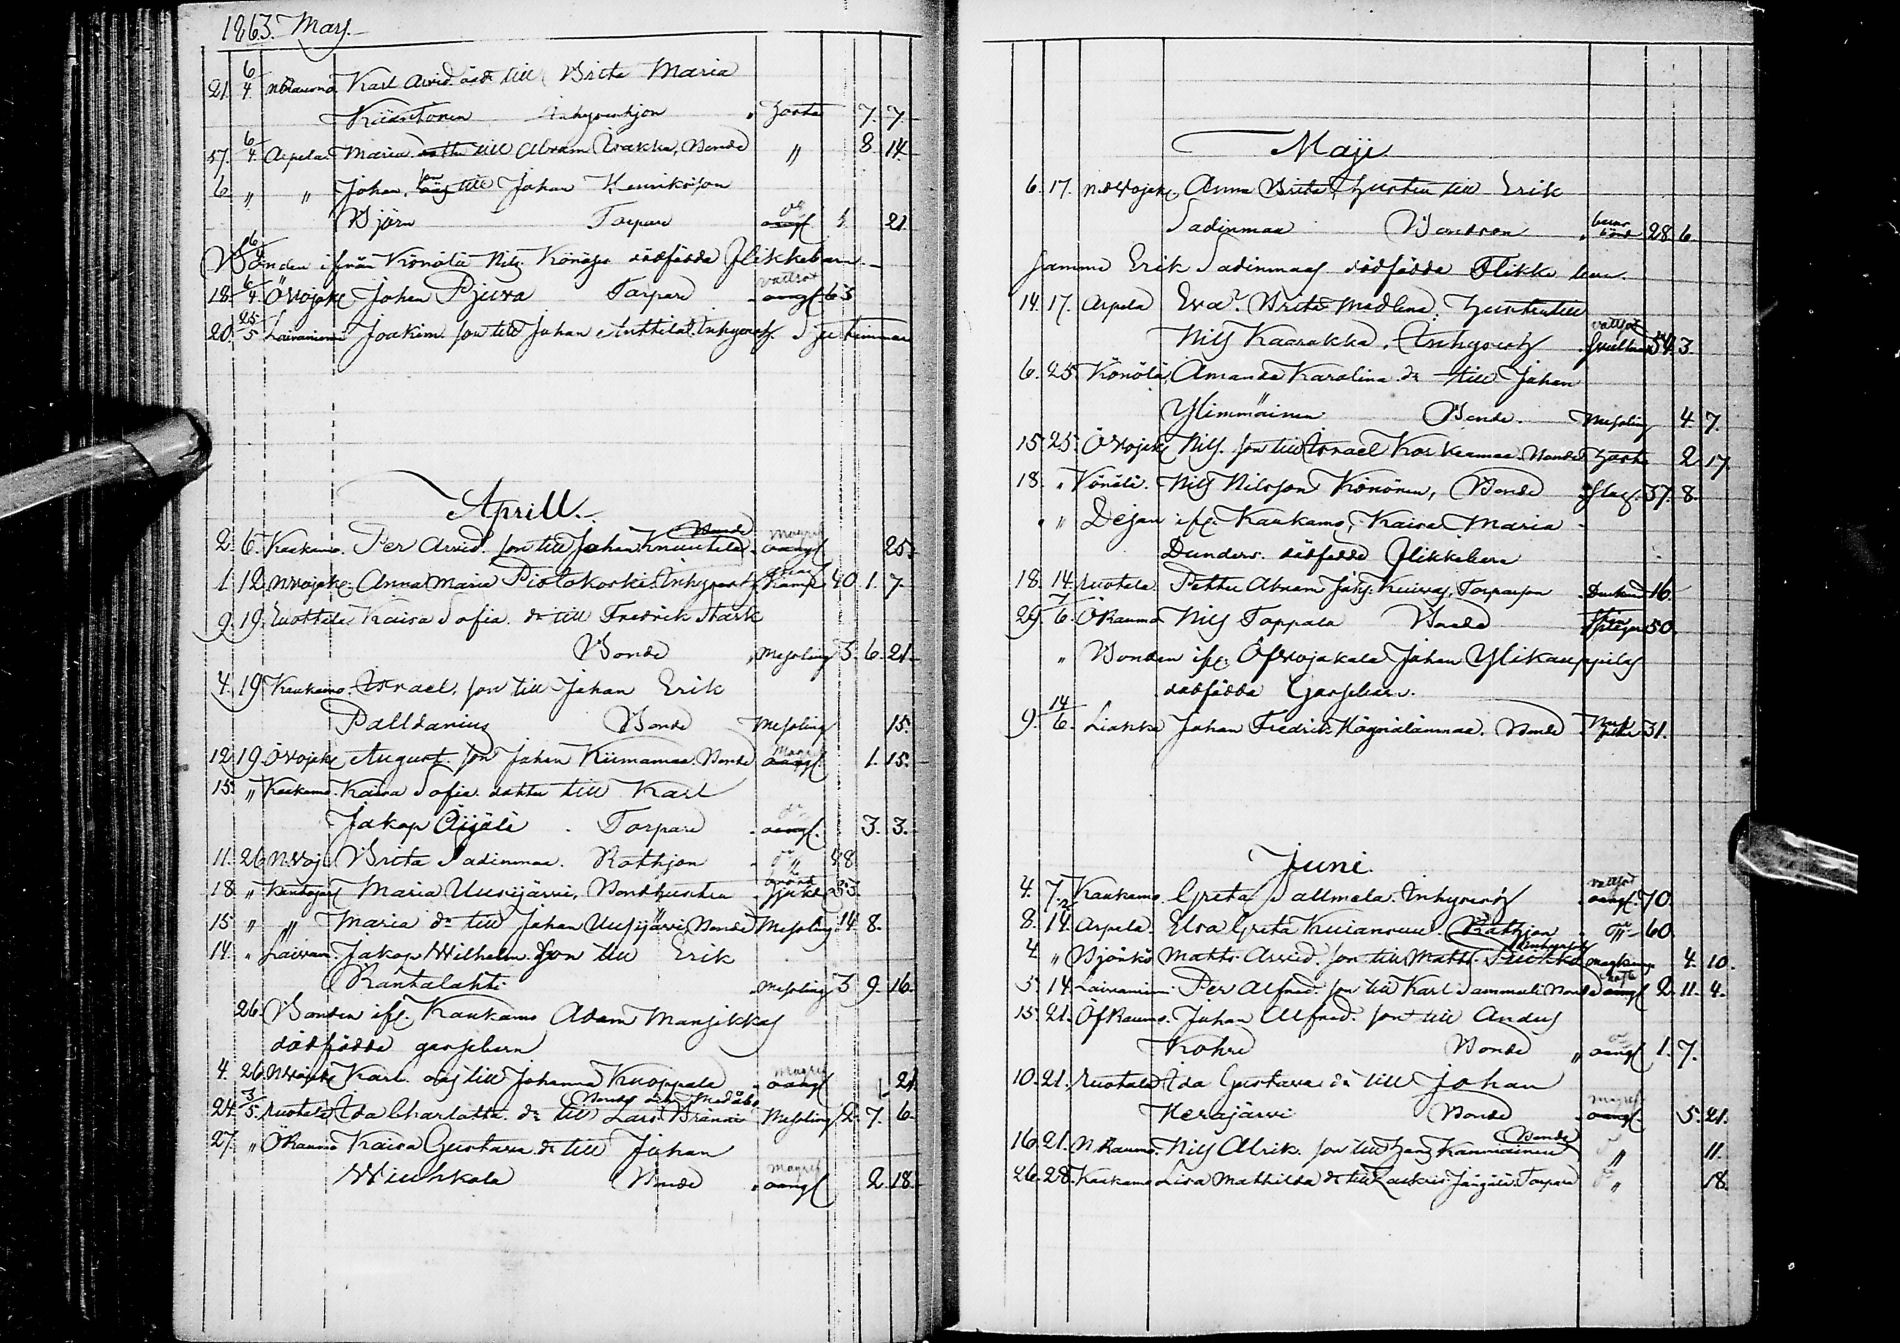 1863. Mars
21. 6/4 N Raumo Karl Arvid oäs till Brita Maria
Inhyseshjon " Hosta 7. 7.
57. 6/4 Arpela Maria dotter till Abram Wakka, Bonde " 8. 14.
6. " " Johan, son till Johan Henriksson
Björn Torpare oangf. 1. 21.
Bonden ifrån Könölä Nils Könöjs dödfödda flickebarn.
18. 6/4 ÖVojak. Johan Pjuva Torpare vattsot oangf 63
20. 25/5 Laivaniemi Joakim son till Johan Anttila, Inhyses
Aprill.
2. 6. Kaakamo. Per Arvid. son till Johan Knuutila Bonde oangf 25.
1. 12. NVojak. Anna Maria Inhyses Kramp 40. 1. 7
9. 19. Ruottala Kaisa Sofia dr till Fredrik Stark
Bonde Messling 3. 6. 21.
4. 19. Kaakamo. Israel. son till Johan Erik
Palldanius Bonde Messling 15.
12. 19. ÖVojak. August. son Johan Kiimamaa. Bonde oangf 1. 15.
15. " Kaakamo. Kaisa Sofia dotter till Karl
Jakop Äijälä. Torpare oangf. 3. 3.
11. 26. N.Voj. Brita Sadinmaa. Rothjon " 88
18. " Maria Uusijärvi, Bondhustru 33.
15. " " Maria dr till Johan Uusijärvi, Bonde Messling. 14. 8.
14. " Laivan. Jakop Wilhelm. son till Erik
Rantalahti Messling 3. 9. 16.
26. Bonden ifr. Kaakamo Adam Mansikkas
dödfödda gossebarn
4. 26. NVojak. Karl. oäs till Johanna Knoppala oangf 21.
24. 3/5. Ruottala Ida Charlotta. dr till Lars Brännä Messling 2. 7. 6.
27. " ÖRaumo Kaisa Gustava dr till Johan
Wiuhkola Bonde oangf 2. 18.
Maji
6. 17. NVojak. Anna Brita, hustru till Erik
Sadinmaa Bondson barnsbörd 28. 6.
samme Erik Sadinmaas dödfödda Flicke barn.
14. 17. Arpela Eva Brita Madlena. hustru till
Nils Kaarakka. Inhyses vattsot 54. 3.
6. 25. Könölä. Amanda Karolina dr till Johan
Ylimmäinen Bonde. Messling 4. 7.
15. 25. ÖVojak. Nils. son till Israel Koskenmaa. Bonde Hosta 2. 17.
18. " Könölä. Nils Nilsson Könönen, Bonde Slag. 37. 8.
" Dejan ifr. Kaakamo, Kaisa Maria
Dunders. dödfödda flickebarn
18. 14. Ruottala. Petter Abram Torpareson Drunknad 16.
29. 7/6. ÖRaumo Nils Toppala Bonde 50.
" Bonden ifr. Öfvojakala Johan Ylikauppilas
dödfödda Gossebarn.
9. 14/6. Liakka Johan Fredrik Bonde 31.
Juni.
4. 7. Kaakamo. Greta Sallmela. Inhyses vattsot oangf. 70.
8. 14. Arpela. Elsa Greta Rothjon " 60.
4. " Björkö Matts Arvid. son till Matts Inhyses 4. 10.
5. 14. Laivaniemi Per Alfred. son till Karl Sammeli Bonde oangf 2. 11. 4.
15. 21. ÖfRaumo. Johan Alfred. son till Anders
Kohre Bonde " oangf 1. 7.
10. 21. Ruottala Ida Gustava dr till Johan
Herajärvi Bonde oangf. 5. 21.
16. 21. N Raumo. Nils Alrik. son till Hans Kanniainen Bonde " 11.
26. 28. Kaakamo Lisa Mathilda dr till Zackris Torpare " 18.